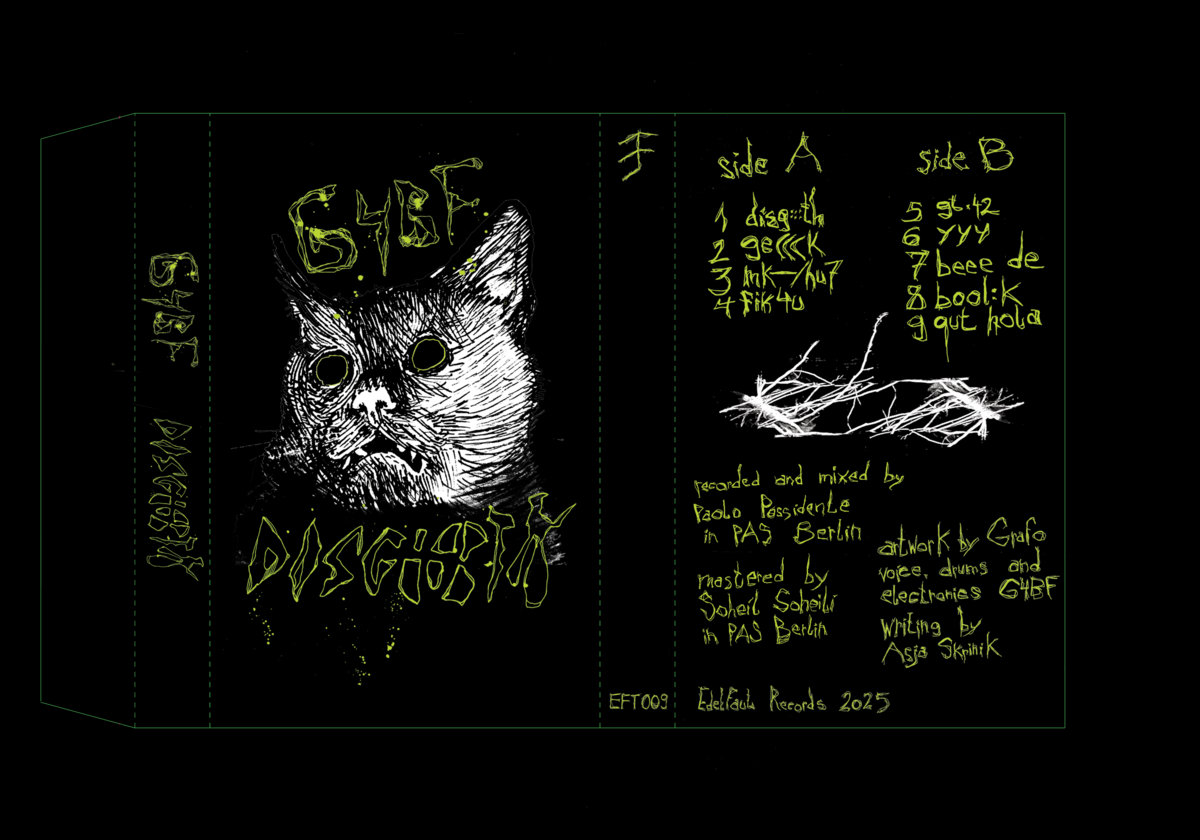 G4BF
G4BF
side A
1 disg::th
2 ge(((k
3 mk—/hu7
4 fik4u
side B
5 gt.42
6 yyy
7 beee de
8 bool:k
9 qut hola
recorded and mixed by
Paolo Possidente
in PAS Berlin
mastered by
Soheil Soheili
in PAS Berlin
artwork by Grafo
voice, drums and
electronics G4BF
writing by
Asja Skrinik
EFT009
EdelFaul Records 2025